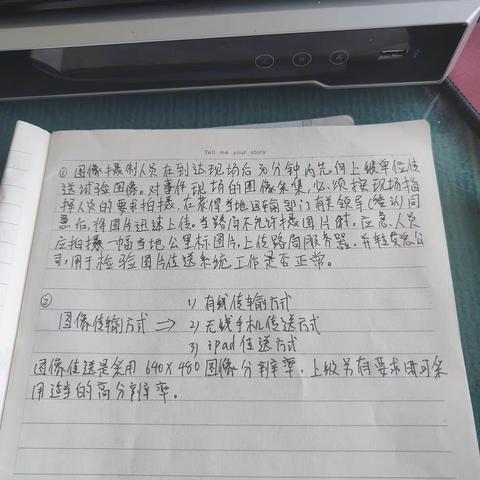 Tell me your story
① 图像摄制人员在到达现场后30分钟内先向上级单位传
送试验图像。对事件现场的图像采集,必须按现场指
挥人员的要求拍摄,在获得当地运输部门有关领导(确认)同
意后,将图片迅速上传。当路局不允许摄图片时,应急人员
应拍摄一幅当地公里标图片,上传路局服务器,并转发总公
司,用于检验图片传送系统工作是否正常。
②
1) 有线传输方式
图像传输方式 ⇒ 2) 无线手机传送方式
3) ipad传送方式
图像传送是采用640×480图像分辨率,上级另有要求时可采
用适当的高分辨率。